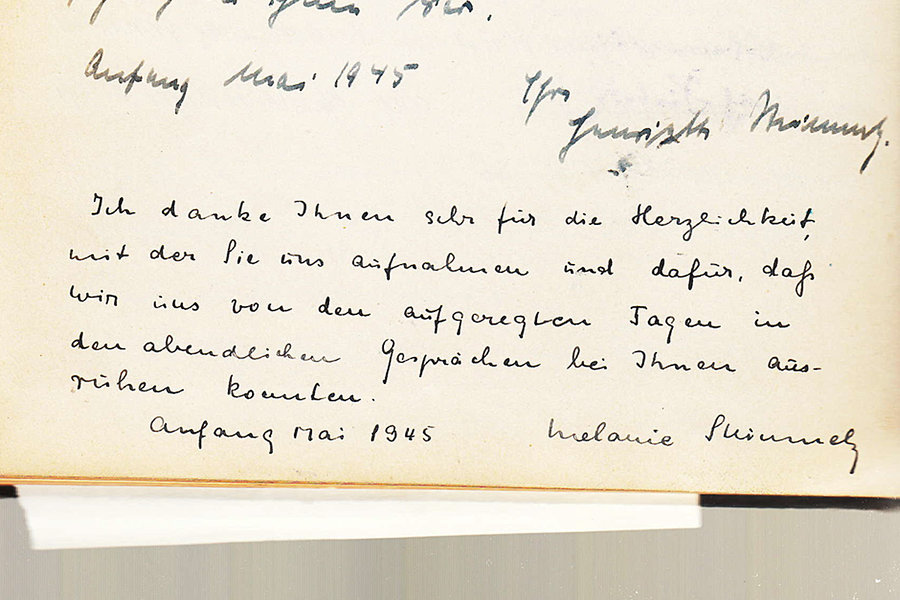 Anfang Mai 1945
Ihr
Ich danke Ihnen sehr für die Herzlichkeit,
mit der Sie uns aufnahmen und dafür, daß
wir uns von den aufgeregten Tagen in
den abendlichen Gesprächen bei Ihnen aus-
ruhen konnten.
Anfang Mai 1945 Melanie